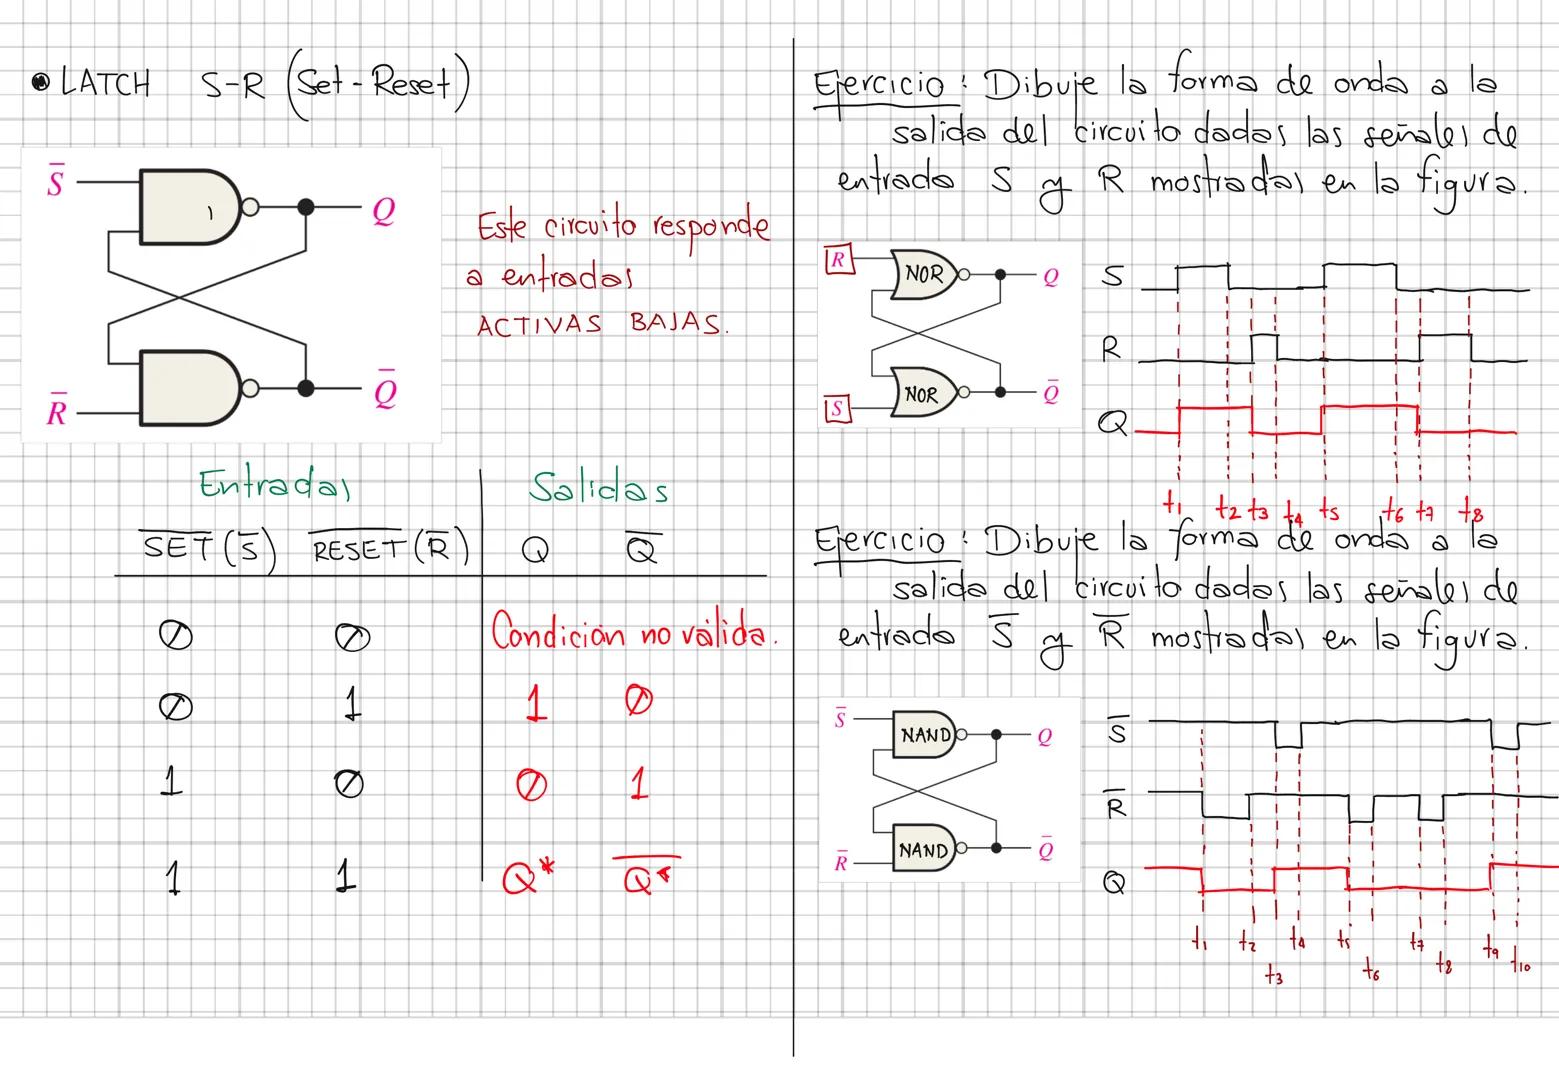 • LATCH S-R (Set-Reset)
S̅
Q
R̅
Q̅
Este circuito responde
a entradas
ACTIVAS BAJAS.
Entradas Salidas
S̅E̅T̅ (S̅) R̅E̅S̅E̅T̅ (R̅) Q Q̅
0 0 Condición no válida.
0 1 1 0
1 0 0 1
1 1 Q* Q̅*̅
Ejercicio: Dibuje la forma de onda a la
salida del circuito dadas las señales de
entrada S y R mostradas en la figura.
R NOR Q
S NOR Q̅
S
R
Q
t1 t2 t3 t4 t5 t6 t7 t8
Ejercicio: Dibuje la forma de onda a la
salida del circuito dadas las señales de
entrada S̅ y R̅ mostradas en la figura.
S̅ NAND Q
R̅ NAND Q̅
S̅
R̅
Q
t1 t2 t3 t4 t5 t6 t7 t8 t9 t10